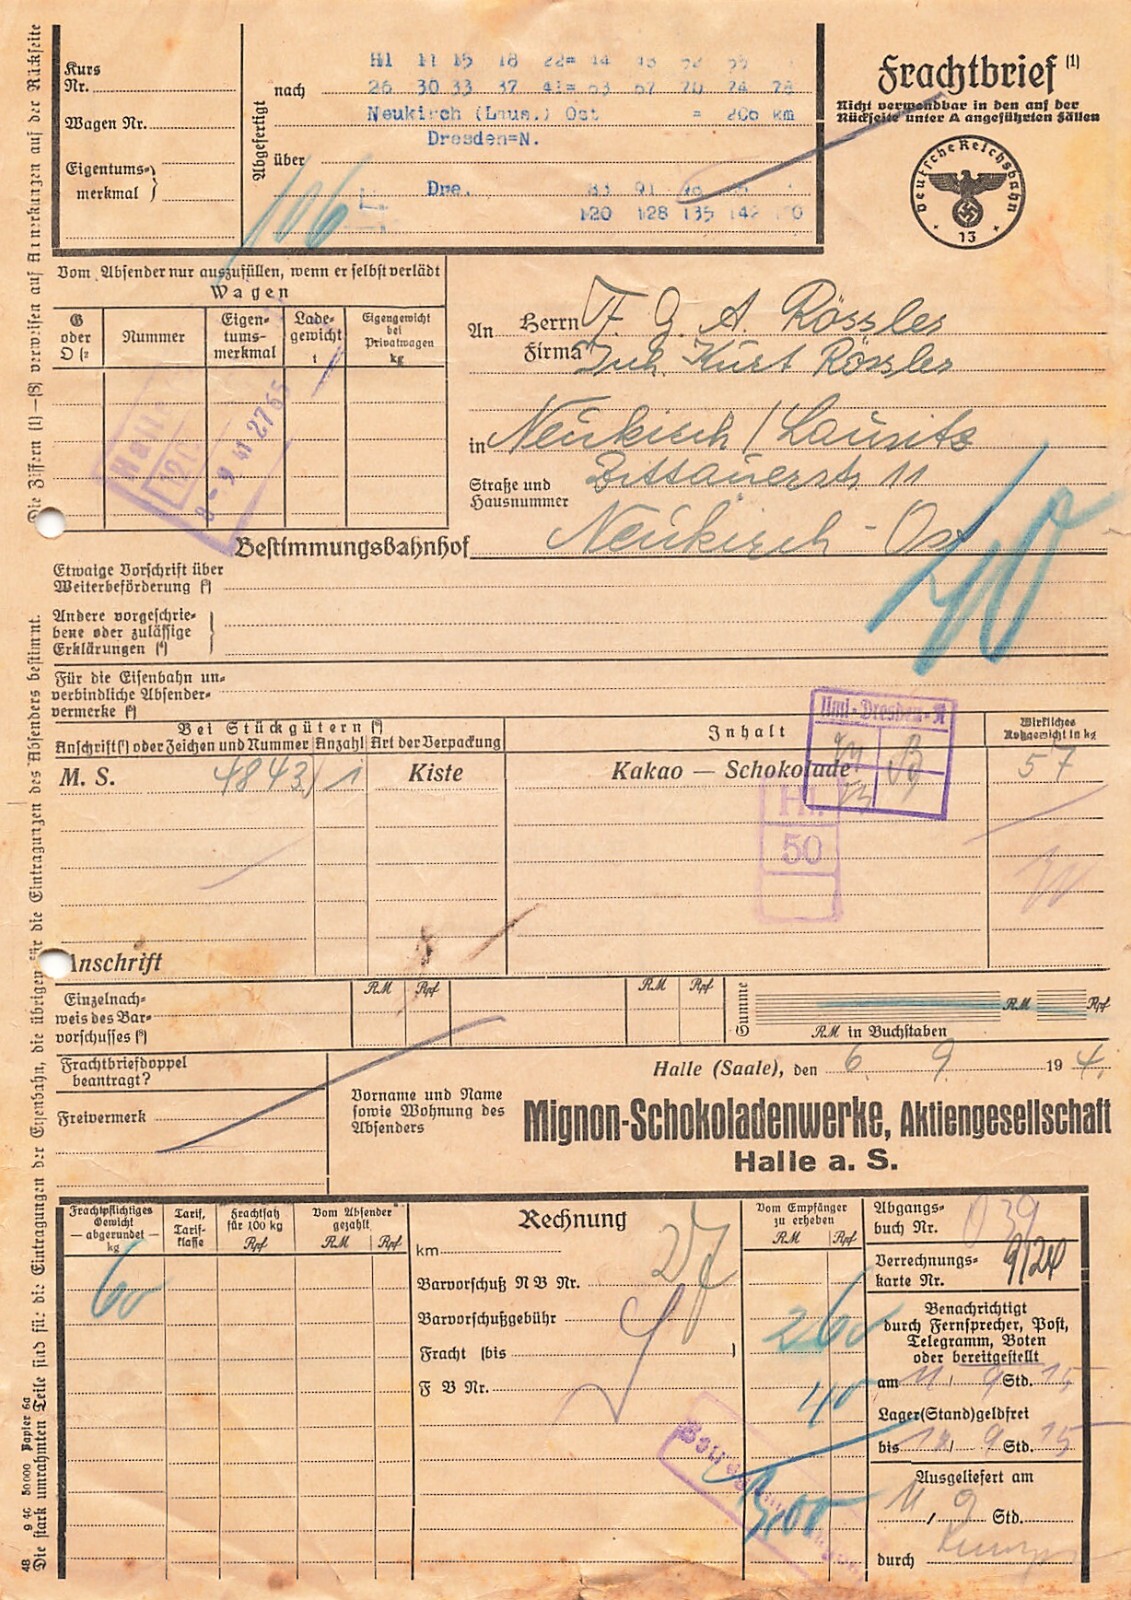 Frachtbrief (1)
Nicht verwendbar in den auf der
Rückseite unter A angeführten Fällen
Deutsche Reichsbahn
13
Kurs
Nr.
Wagen Nr.
Eigentums-
merkmal
Abgefertigt
nach
über
Hl 11 15 18 22= 44
26 30 33 37 41= 63 67 70 74 78
Neukirch (Laus.) Ost = 206 km
Dresden=N.
Dre. 83 91
120 128 135 142
106
Vom Absender nur auszufüllen, wenn er selbst verlädt
Wagen
G
oder
O (2
Nummer
Eigen-
tums-
merkmal
Lade-
gewicht
t
Eigengewicht
bei
Privatwagen
kg
An Herrn F. G. A. Rössler
Firma Inh. Kurt Rössler
in Neukirch / Lausitz
Straße und
Hausnummer
Zittauerstr. 11
Bestimmungsbahnhof Neukirch - Ost
40
Etwaige Vorschrift über
Weiterbeförderung (3)
Andere vorgeschrie-
bene oder zulässige
Erklärungen (4)
Für die Eisenbahn un-
verbindliche Absender-
vermerke (5)
Bei Stückgütern (6)
Anschrift(7) oder Zeichen und Nummer
Anzahl
Art der Verpackung
Inhalt
Wirkliches
Rohgewicht in kg
M. S. 4843 1 Kiste Kakao — Schokolade 57
Uml-Dresden-N
Hl.
50
Anschrift
Einzelnach-
weis des Bar-
vorschusses (8)
RM Rpf
RM Rpf
Summe
RM Rpf
RM in Buchstaben
Frachtbriefdoppel
beantragt?
Freivermerk
Halle (Saale), den 6. 9. 194
Vorname und Name
sowie Wohnung des
Absenders
Mignon-Schokoladenwerke, Aktiengesellschaft
Halle a. S.
Frachtpflichtiges
Gewicht
— abgerundet —
kg
Tarif,
Tarif-
klasse
Frachtsatz
für 100 kg
Rpf
Vom Absender
gezahlt
RM Rpf
Rechnung
Vom Empfänger
zu erheben
RM Rpf
60
km
Barvorschuß N B Nr.
Barvorschußgebühr
Fracht (bis )
F B Nr.
27
260
40
3,00
Abgangs-
buch Nr.
039
Verrechnungs-
karte Nr.
Benachrichtigt
durch Fernsprecher, Post,
Telegramm, Boten
oder bereitgestellt
am 11/ 9 Std. 15
Lager(Stand)geldfrei
bis 12/ 9 Std. 15
Ausgeliefert am
11/ 9 Std.
durch
Die Ziffern (1)—(8) verweisen auf Anmerkungen auf der Rückseite
Die stark umrahmten Teile sind für die Eintragungen der Eisenbahn, die übrigen für die Eintragungen des Absenders bestimmt.
48 9 40 50000 Papier 6a